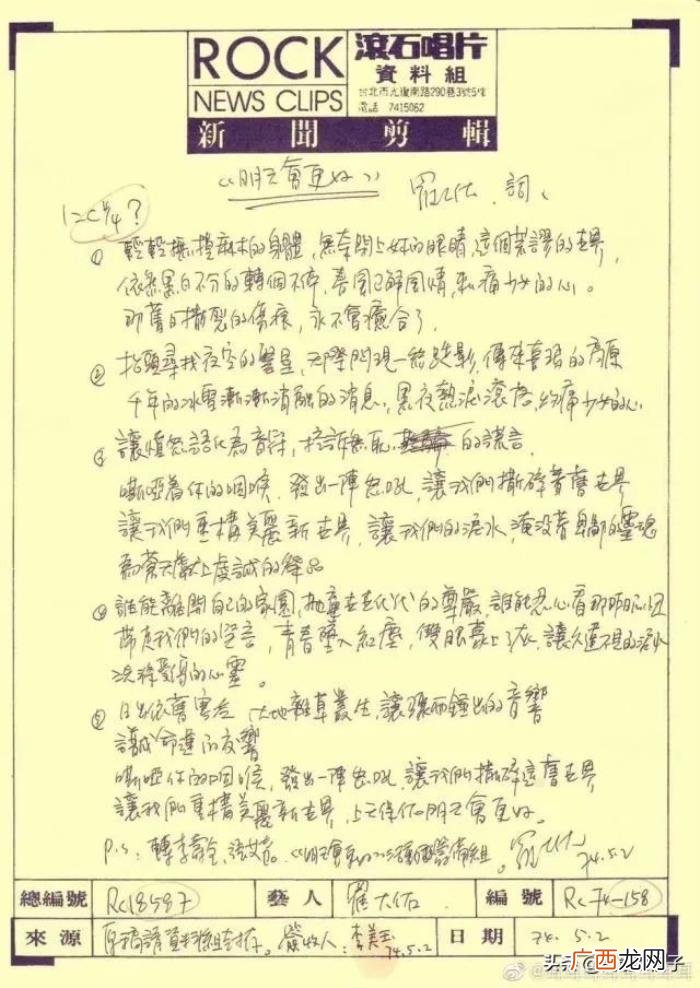 ROCK
NEWS CLIPS
滾石唱片
資料組
台北市光復南路290巷3號5樓
電話 7415062
新聞剪輯
《明天會更好》 羅大佑．詞、
1=C 4/4?
① 輕輕撫捏麻木的身體，無奈閉上妳的眼睛，這個荒謬的世界，
依然黑白不分的轉個不停，春風不解風情，刺痛少女的心。
那舊日撕裂的傷痕，永不會癒合了，
② 抬頭尋找夜空的繁星，天際閃現一絲
千年的冰雪漸漸消融的消息，黑夜熱淚滾落，灼痛少女的心
③ 讓憤怒語化為音符，控訴無恥 的謊言，
嘶啞著你的咽喉，發出一陣怒吼，讓我們撕碎舊世界
讓我們重構美麗新世界，讓我們的淚水，淹没著卑鄙的靈魂
為蒼天獻上虔誠的祭品
④ 誰能離開自己的家園，拋棄世世代代的尊嚴，誰能忍心看那昨日
帶走我們的 青春墜入紅塵，雙眼蒙上了灰，讓久違不見的淚水
洗滌受傷的心靈。
⑤ 日出依舊寒冷 大地雜草叢生，讓 的音響
譜成命運的交響
嘶啞你的咽喉，發出一陣怒吼，讓我們撕碎這舊世界
讓我們重構美麗新世界，上天保佑明天會更好。
P.S：轉李壽全、張艾嘉。《明天會更好》 籌備組。羅大佑 74.5.2
總編號 Rc18587 藝人 羅大佑 編號 Rc74-158
來源 原稿請資料組封存。簽收人：李美玉 74.5.2 日期 74.5.2
头条
广西龙网子